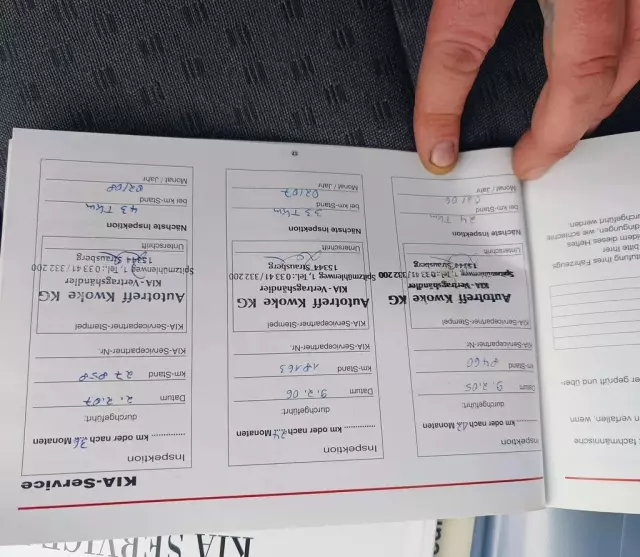 fachmännische
verfallen, wenn
geprüft und über-
Ihres Fahrzeugs
bitte Ihrer
dieses Heftes
wie
durchgeführt werden.
KIA-Service
Inspektion
............ km oder nach 12 Monaten
durchgeführt:
Datum 9.2.05
km-Stand
KIA-Servicepartner-Nr.
KIA-Servicepartner-Stempel
Autotreff Kwoke KG
KIA - Vertragshändler
Spitzmühlenweg 1, Tel.: 03341/332200
15344 Strausberg
Unterschrift
Nächste Inspektion
bei km-Stand 24 Tkm
Monat / Jahr 02/06
Inspektion
............ km oder nach 24 Monaten
durchgeführt:
Datum 9.2.06
km-Stand 18163
KIA-Servicepartner-Nr.
KIA-Servicepartner-Stempel
Autotreff Kwoke KG
KIA - Vertragshändler
Spitzmühlenweg 1, Tel.: 03341/332200
15344 Strausberg
Unterschrift
Nächste Inspektion
bei km-Stand 33 Tkm
Monat / Jahr 02/07
Inspektion
............ km oder nach 36 Monaten
durchgeführt:
Datum 2.2.07
km-Stand 27858
KIA-Servicepartner-Nr.
KIA-Servicepartner-Stempel
Autotreff Kwoke KG
KIA - Vertragshändler
Spitzmühlenweg 1, Tel.: 03341/332200
15344 Strausberg
Unterschrift
Nächste Inspektion
bei km-Stand 43 Tkm
Monat / Jahr 02/08
KIA